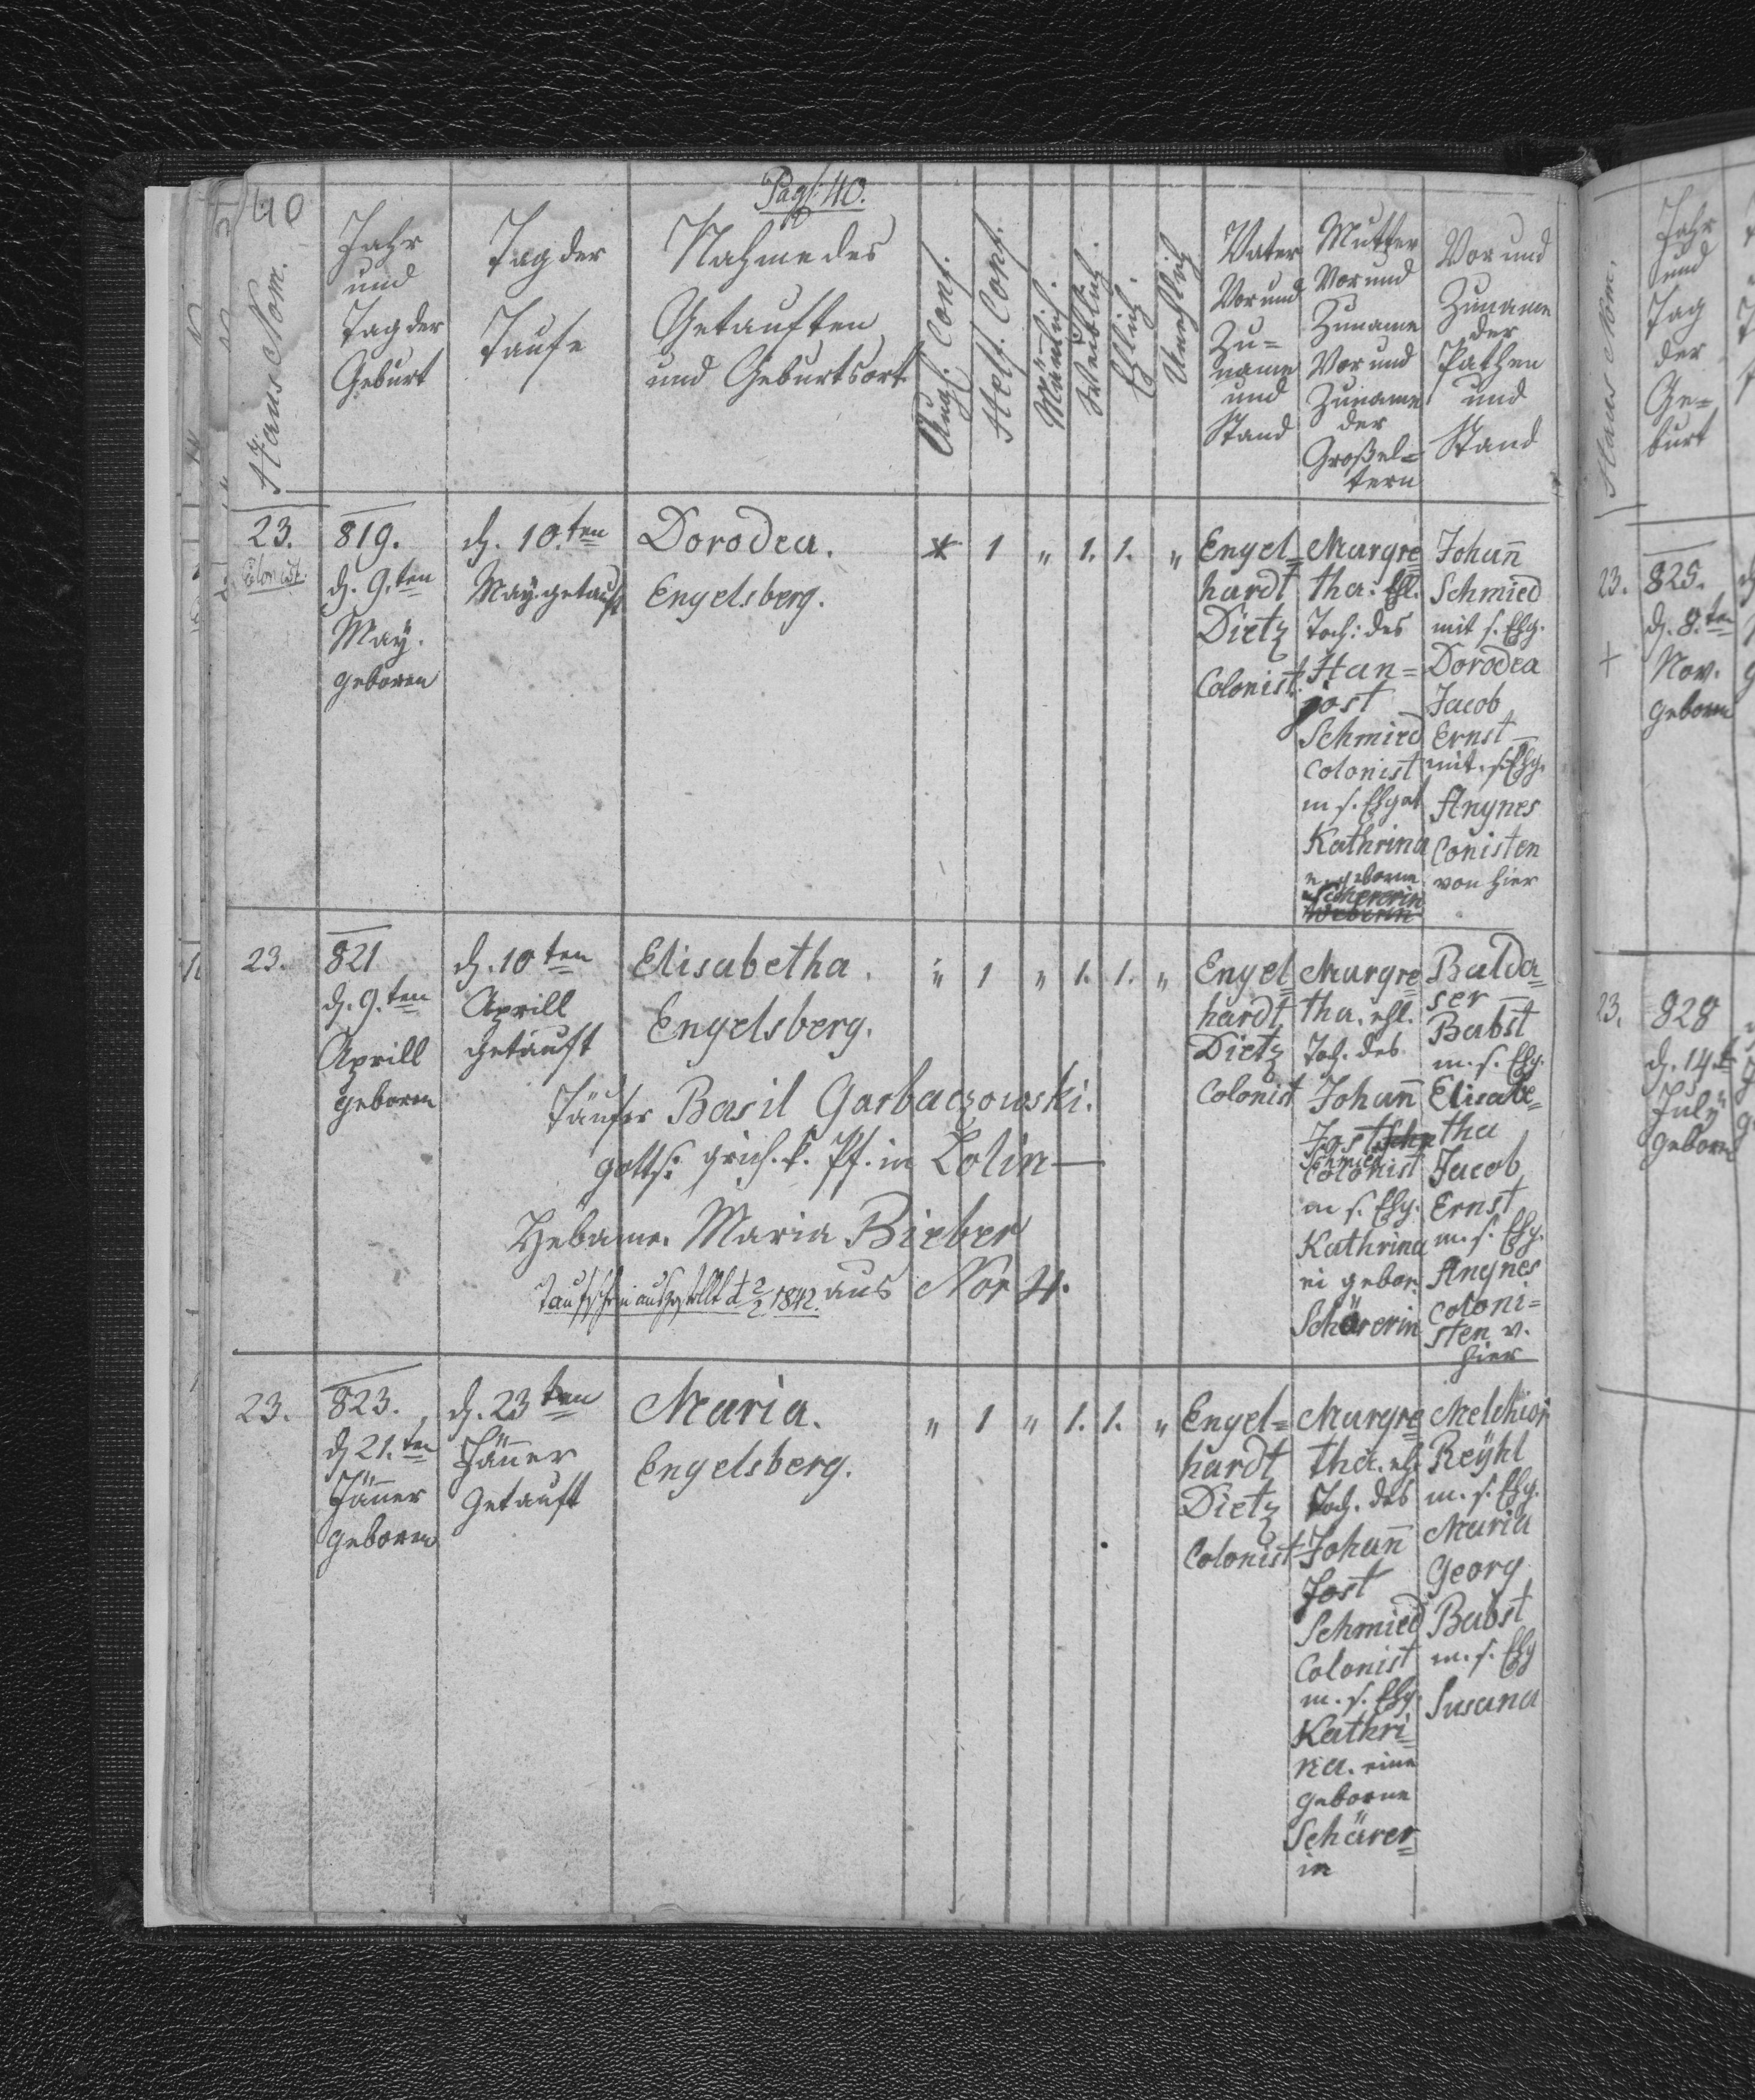 40
Pag: 40.
Haus Nom.
Jahr
und
Tag der
Geburt
Tag der
Taufe
Nahme des
Getauften
und Geburtsort
Augs. Conf.
Helf. Conf.
Mänlich.
Weiblich.
Ehlich.
Unehlich
Vater
Vor und
Zu=
name
und
Stand
Mutter
Vor und
Zuname
Vor und
Zuname
der
Großel=
tern
Vor und
Zuname
der
Pathen
und
Stand
23.
Colonist.
819.
d. 9.ten
May.
geboren
d. 10.ten
May. getauft
Dorodea.
Engelsberg.
* 1 " 1. 1. "
Engel=
hardt
Dietz
Colonist.
Margre=
tha. Ehl.
Toch: des
Han=
jost
Schmied
Colonist
m s. Ehgat
Kathrina
e. geborne
Schererin
Johan̄
Schmied
mit s. Ehg.
Dorodea
Jacob
Ernst
mit. s. Ehg.
Angnes
Conisten
von hier
23.
821
d. 9.ten
Aprill
geboren
d. 10ten
Aprill
getauft
Elisabetha.
Engelsberg.
" 1 " 1. 1. "
Täufer Basil Garbaczowski.
gotts: grich. k. Pf. in Lolin
Hebame. Maria Bieber
aus Nor 4.
Taufschein ausgestellt d 2/2 1842.
Engel=
hardt
Dietz
Colonist
Margre=
tha. ehl.
Toch. des
Johan̄
Jost
Schmied
Colonist
m s. Ehg.
Kathrina
ei gebor.
Schärerin
Balda=
ser
Babst
m. s. Ehg.
Elisabe=
tha
Jacob
Ernst
m. s. Ehg.
Angnes
Coloni=
sten v.
hier
23.
823.
d 21.ten
Jän̄er
geboren
d. 23ten
Jän̄er
Getauft
Maria.
Engelsberg.
" 1 " 1. 1. "
Engel=
hardt
Dietz
Colonist
Margre=
tha. ehl
Toch. des
Johan̄
Jost
Schmied
Colonist
m. s. Ehg.
Kathri=
na. eine
geborne
Schärer=
in
Melchior
Reÿhl
m. s. Ehg.
Maria
Georg
Babst
m. s. Ehg
Susana
Haus Nom.
Jahr
und
Tag
der
Ge=
burt
23.
+
825.
d. 8.ten
Nov.
geboren
23.
828
d. 14t
Julÿ
geboren